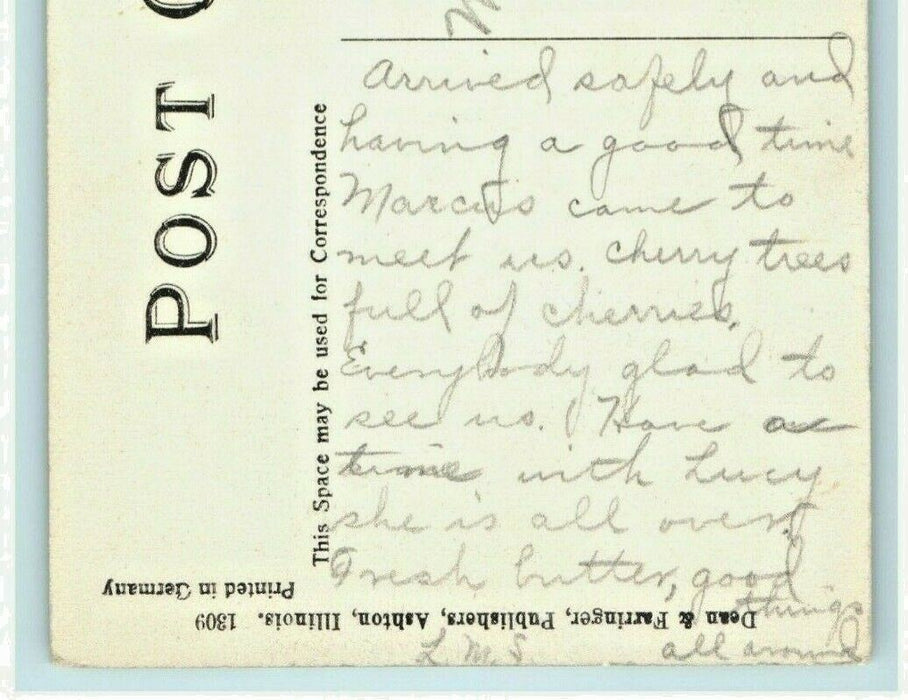 POST
This Space may be used for Correspondence
Arrived safely and
having a good time
Marcus came to
meet us. Cherry trees
full of cherries.
Everybody glad to
see us. Have a
time with Lucy
she is all over.
Fresh butter, good
things
all around
L. M. S
Printed in Germany
Dean & Farringer, Publishers, Ashton, Illinois. 1309